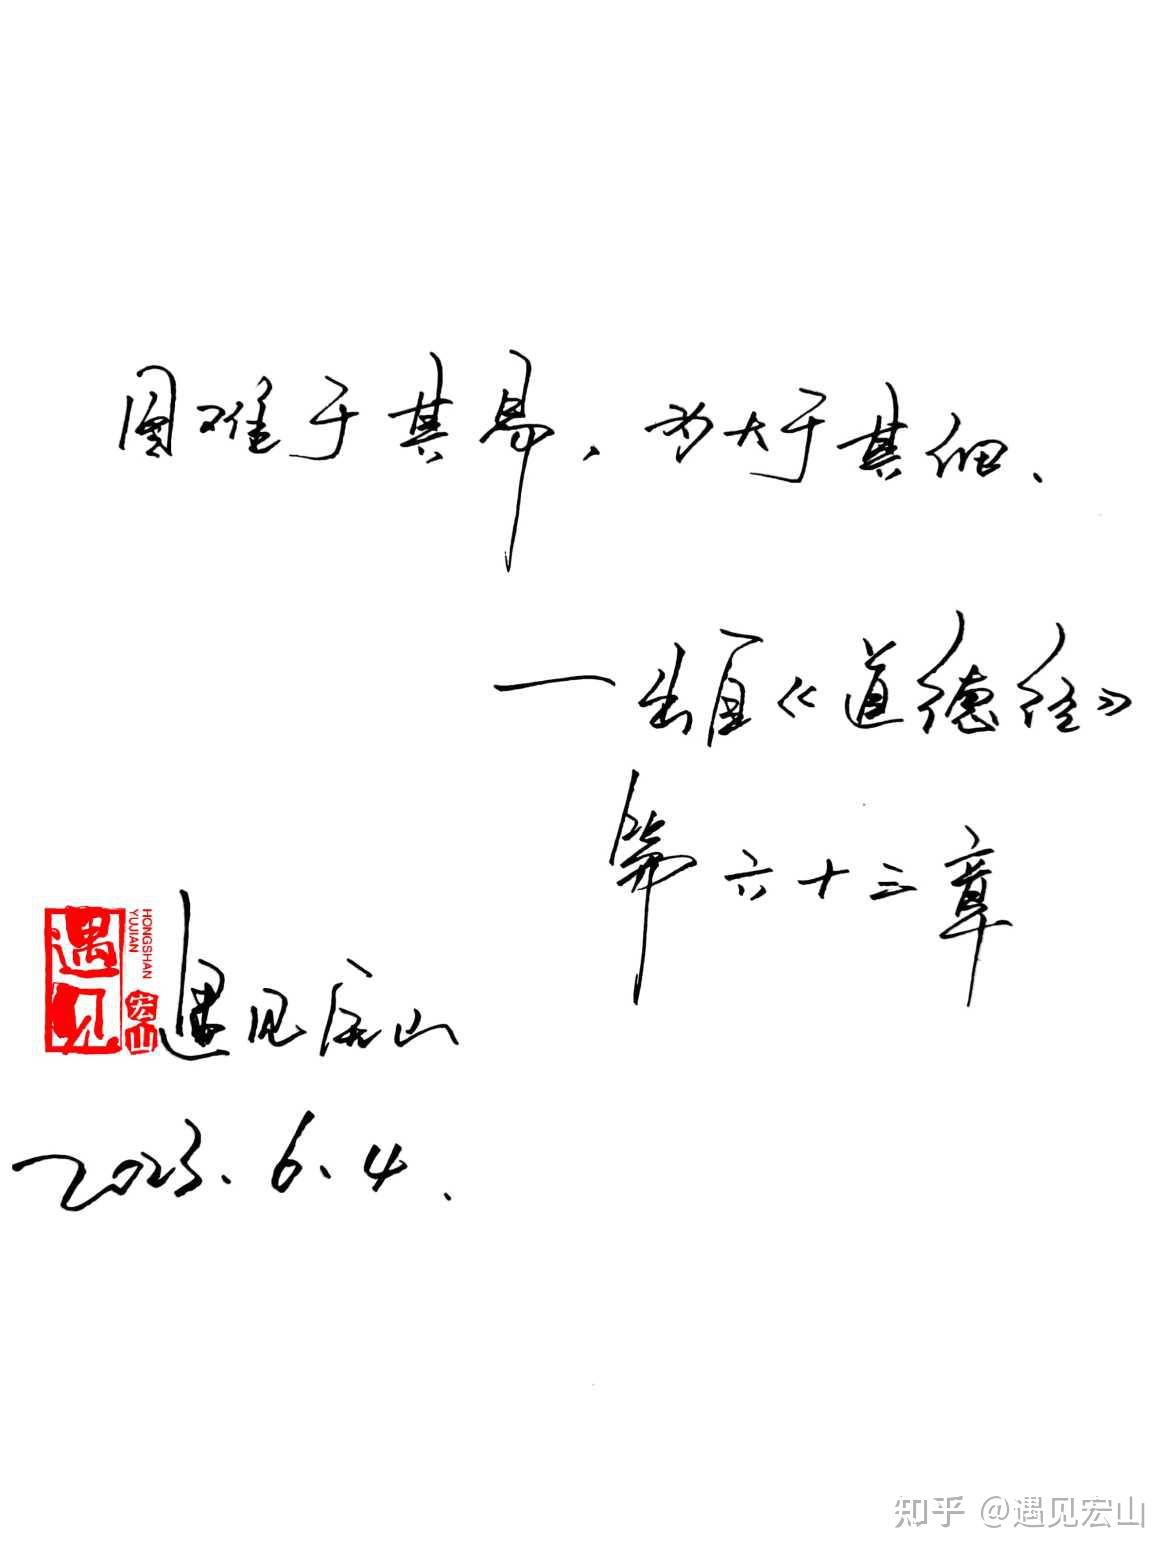 图难于其易，为大于其细、
一出自《道德经》
第六十三章
遇见
HONGSHAN
YUJIAN
宏山
遇见宏山
2023.6.4.
知乎 @遇见宏山